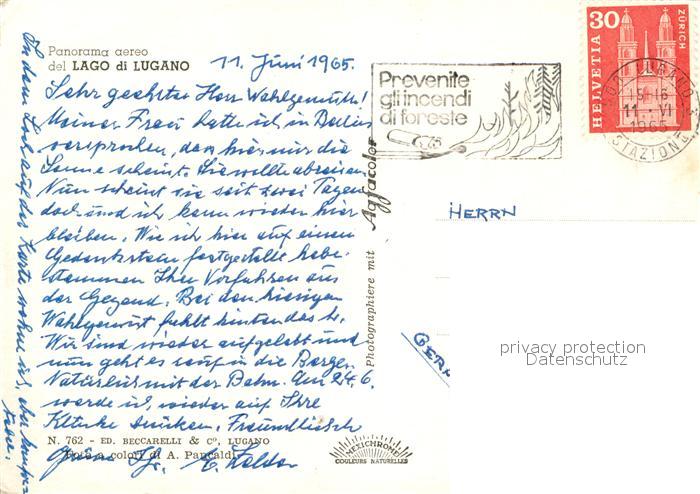 Panorama aereo
del LAGO di LUGANO
11. Juni 1965.
Sehr geehrter Herr Wahlgemuth!
Meiner Frau hatte ich in Berlin
versprochen, das hier nur die
Sonne scheint. Sie wollte abreisen.
Nun scheint sie seit zwei Tagen
doch und ich kann wieder hier
bleiben. Wie ich hier auf einen
Gedenkstein festgestellt habe
stammen Ihre Vorfahren aus
der Gegend. Bei den hiesigen
Wahlgemut fehlt hinten das h.
Wir sind wieder aufgelebt und
nun geht es rauf in die Berge.
Natürlich mit der Bahn. Am 24. 6.
werde ich wieder auf Ihre
Klinke drücken. Freundlichst
N. 762 - ED. BECCARELLI & Cº, LUGANO
Foto a colori di A. Pancaldi
Grüsse Ihr
In dem Loch auf der Karte wohne ich,
Photographiere mit Agfacolor
MEXICHROME
COULEURS NATURELLES
Prevenite
gli incendi
di foreste
30
HELVETIA
ZÜRICH
15-16
11.-VI
1965
STAZIONE
HERRN
privacy protection
Delcampe